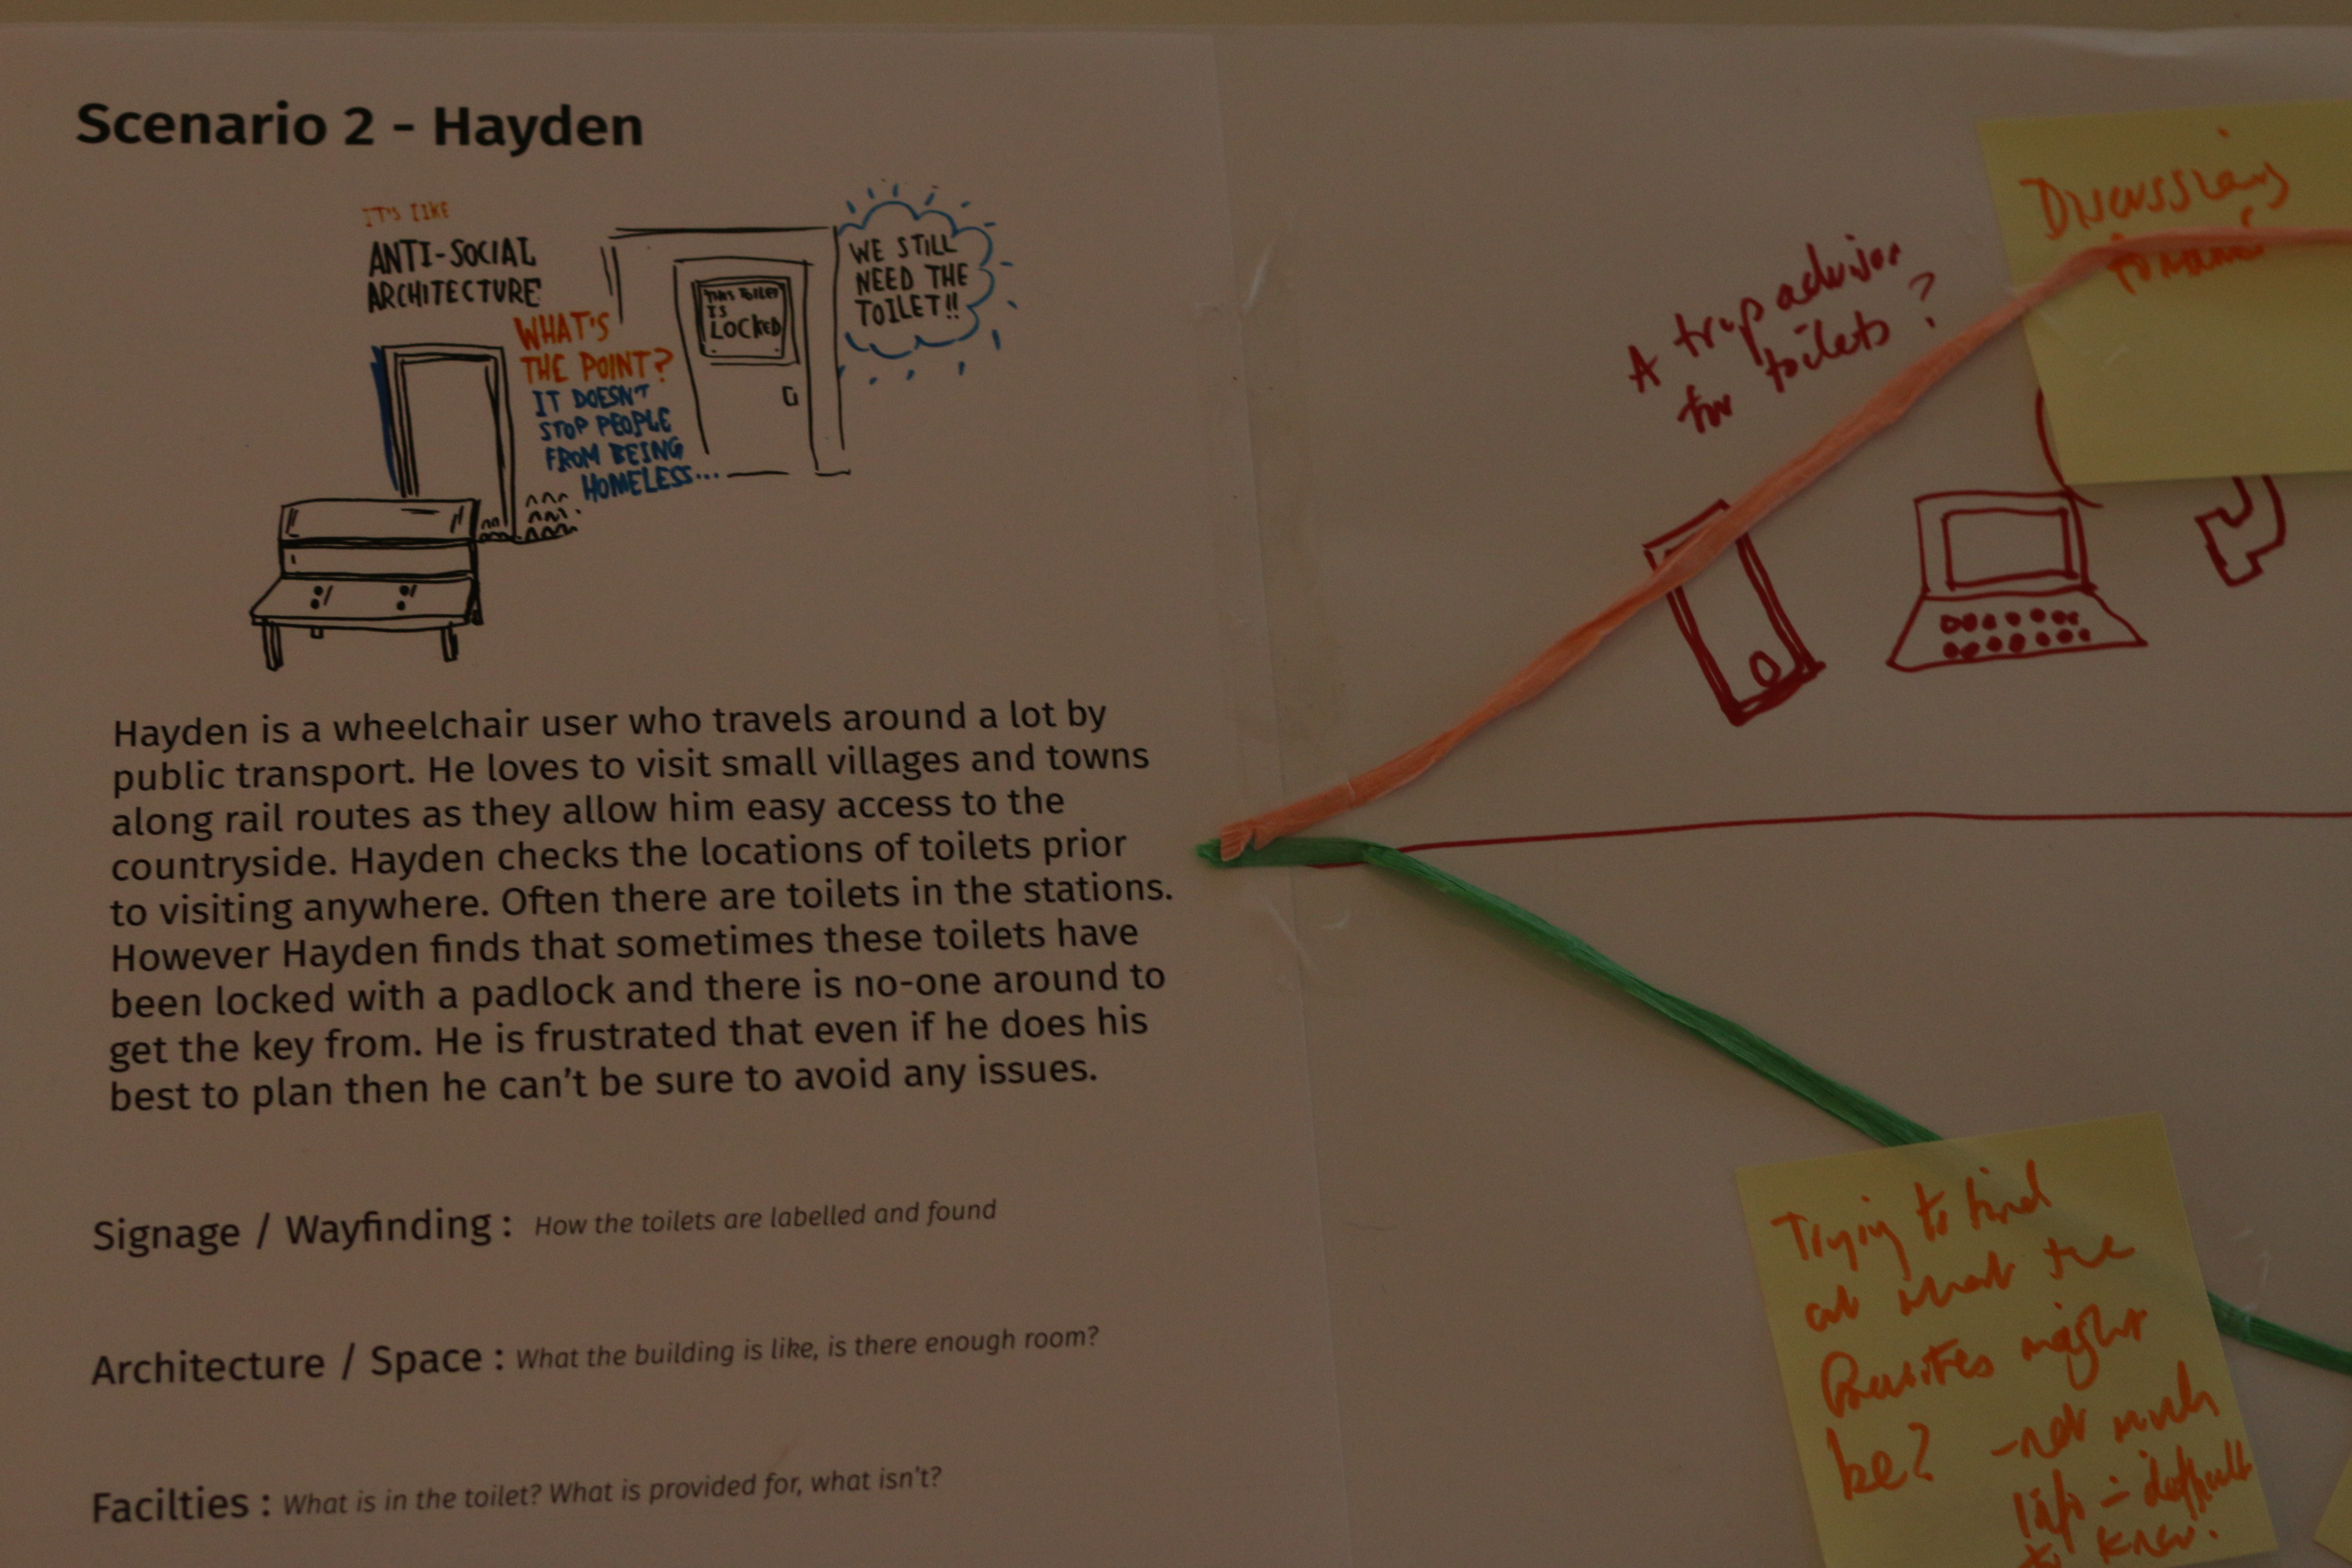 Scenario 2 - Hayden
IT'S LIKE
ANTI-SOCIAL
ARCHITECTURE
WHAT'S
THE POINT?
IT DOESN'T
STOP PEOPLE
FROM BEING
HOMELESS...
THIS TOILET
IS
LOCKED
WE STILL
NEED THE
TOILET!!
Hayden is a wheelchair user who travels around a lot by
public transport. He loves to visit small villages and towns
along rail routes as they allow him easy access to the
countryside. Hayden checks the locations of toilets prior
to visiting anywhere. Often there are toilets in the stations.
However Hayden finds that sometimes these toilets have
been locked with a padlock and there is no-one around to
get the key from. He is frustrated that even if he does his
best to plan then he can't be sure to avoid any issues.
Signage / Wayfinding : How the toilets are labelled and found
Architecture / Space : What the building is like, is there enough room?
Facilties : What is in the toilet? What is provided for, what isn't?
A trip advisor
for toilets ?
Discussions
Trying to find
out what the
might
be? - not much
info - difficult
to know.